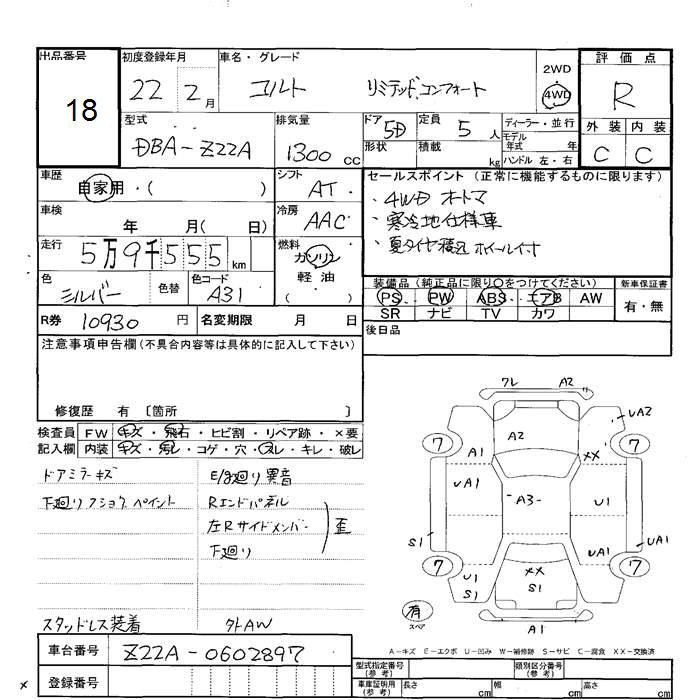 出品番号
18
初度登録年月
22 2 月
車名・グレード
コルト リミテッド、コンフォート
2WD
4WD
評価点
R
型式
DBA-Z22A
排気量
1300 cc
ドア 5D
形状
定員 5 人
積載 kg
ディーラー・並行
モデル
年式 年
ハンドル 左・右
外装 内装
C C
車歴
自家用・( )
シフト
AT
セールスポイント(正常に機能するものに限ります)
・4WD オートマ
・寒冷地仕様車
・夏タイヤ積込 ホイール付
車検
年 月( 日)
冷房
AAC
走行
5万9千555 km
燃料
ガソリン
軽油
( )
色
シルバー
色替
色コード
A31
装備品(純正品に限り○をつけてください)
PS PW ABS エアB AW
SR ナビ TV カワ
新車保証書
有・無
R券 10930 円
名変期限 月 日
後日品
注意事項申告欄(不具合内容等は具体的に記入して下さい)
修復歴 有 〔箇所 〕
検査員
記入欄
FW キズ・飛石・ヒビ割・リペア跡・×要
内装 キズ・汚レ・コゲ・穴・スレ・キレ・破レ
ドアミラーキズ
下廻りフショク ペイント
スタッドレス装着
E/g廻り異音
Rエンドパネル
左Rサイドメンバー
下廻り
歪
外AW
ワレ A2
UA2
7 A2 7
A1 XX
UA1 -A3- U1
S1 UA1
7 XX 7
U1 S1
S1
A1
有
スペア
A-キズ E-エクボ U-凹み W-補修跡 S-サビ C-腐食 XX-交換済
車台番号 Z22A-0602897
登録番号
型式指定番号
(参考)
類別区分番号
(参考)
車庫証明用
(参考)
長さ cm 幅 cm 高さ cm